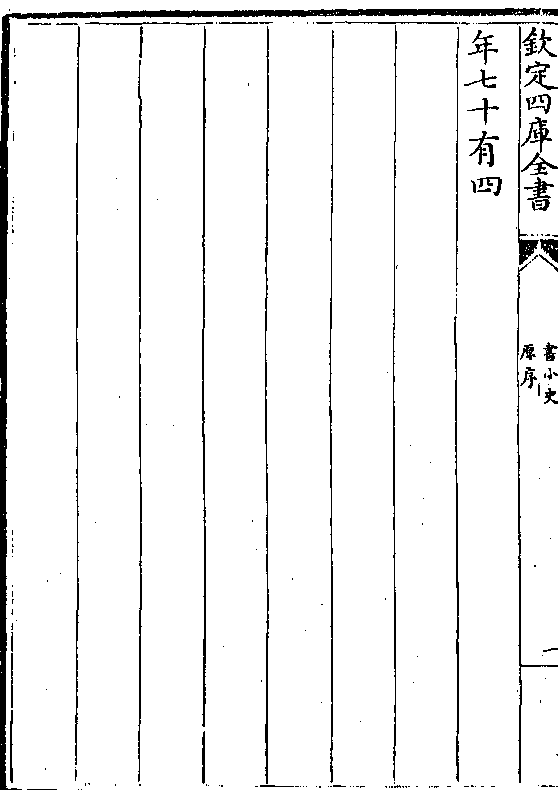 欽定四庫全書
書小史
原序
一
年七十有四